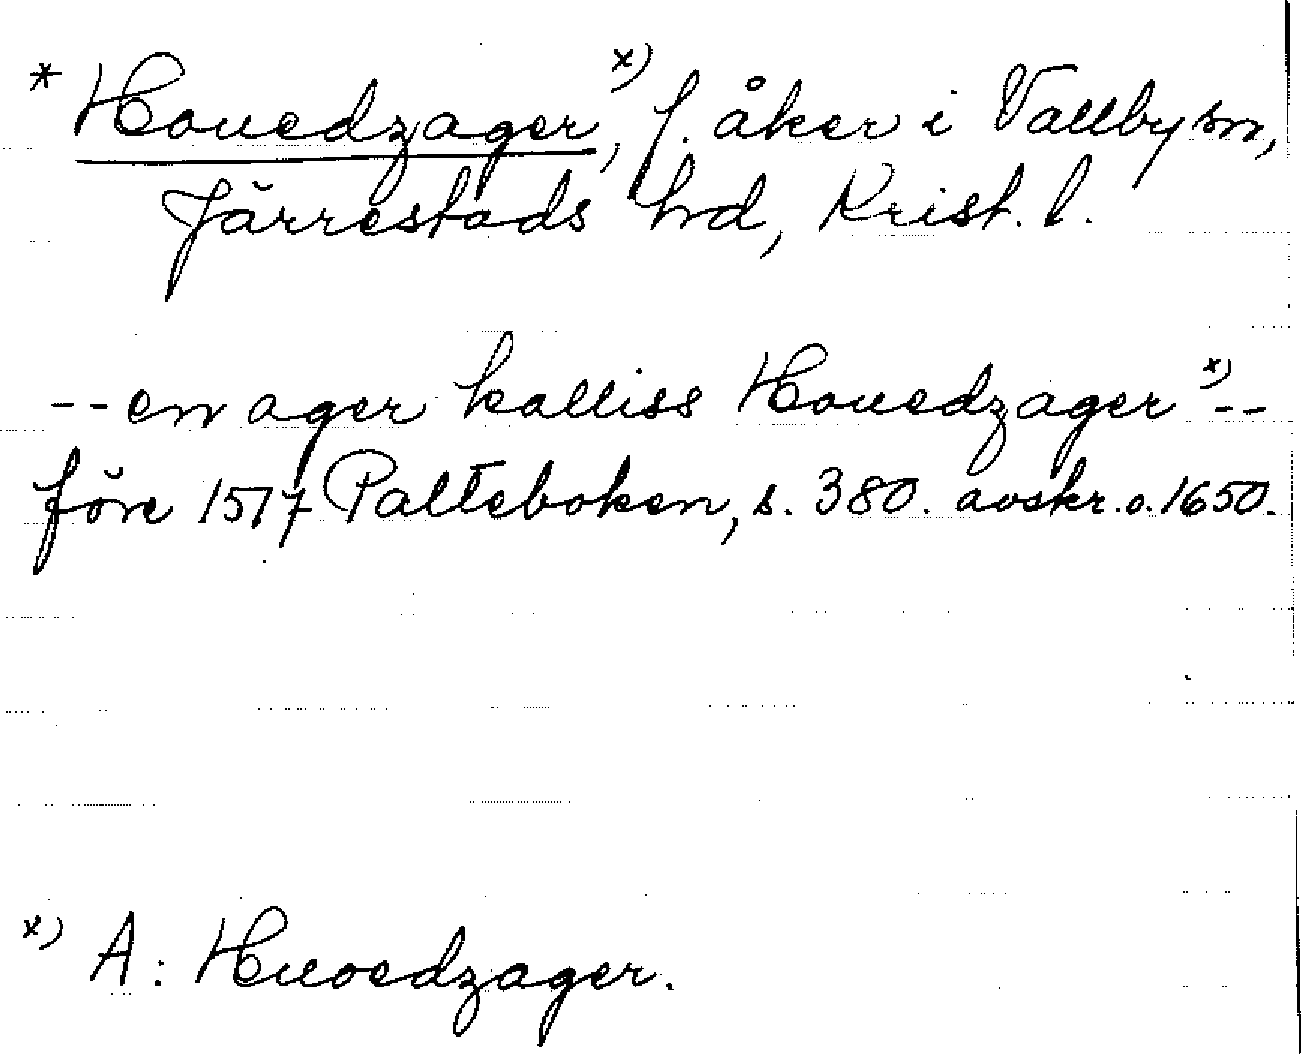 * Houedzager,x) f. åker i Vallby sn,
Järrestads hd, Krist. l.
-- en ager kalliss Houedzager x) --
före 1517 Palteboken, s. 380. avskr. o. 1650.
x) A: Huoedzager.